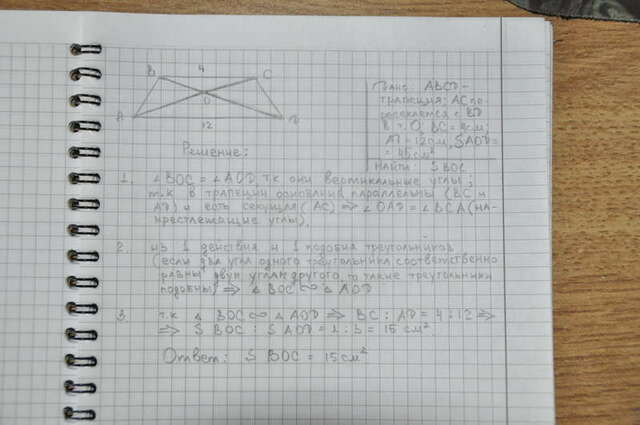 B 4 C
O
A 12 D
Дано: ABCD-
трапеция; AC пе-
ресекается с BD
в т. O, BC = 4 см;
AD = 12 см, SAOD =
= 45 см²
Найти: S BOC
Решение:
1. ∠ BOC = ∠ AOD, т.к они вертикальные углы;
т.к в трапеции основания параллельны (BC и
AD) и есть секущая (AC) => ∠ OAD = ∠ BCA (на-
крестлежащие углы).
2. из 1 действия и 1 подобия треугольников
(если два угла одного треугольника соответственно
равны двум углам другого, то такие треугольники
подобны) => ∆ BOC ∞ ∆ AOD
3. т.к ∆ BOC ∞ ∆ AOD => BC : AD = 4 : 12 =>
=> S BOC : S AOD = 1 : 3 = 15 см²
Ответ: S BOC = 15 см²